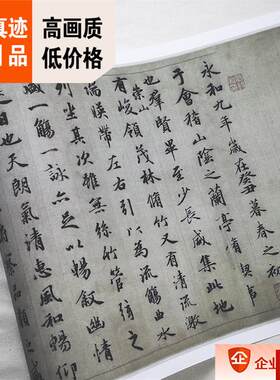 真迹
品
高画质
低价格
永和九年歲在癸丑暮春之初
于會稽山陰之蘭亭脩稧事
也羣賢畢至少長咸集此地
有崇山峻領茂林脩竹又有清流激
湍暎帶左右引以為流觴曲水
列坐其次雖無絲竹管弦之
盛一觴一詠亦足以暢敘幽情
是日也天朗氣清惠風和暢仰
企